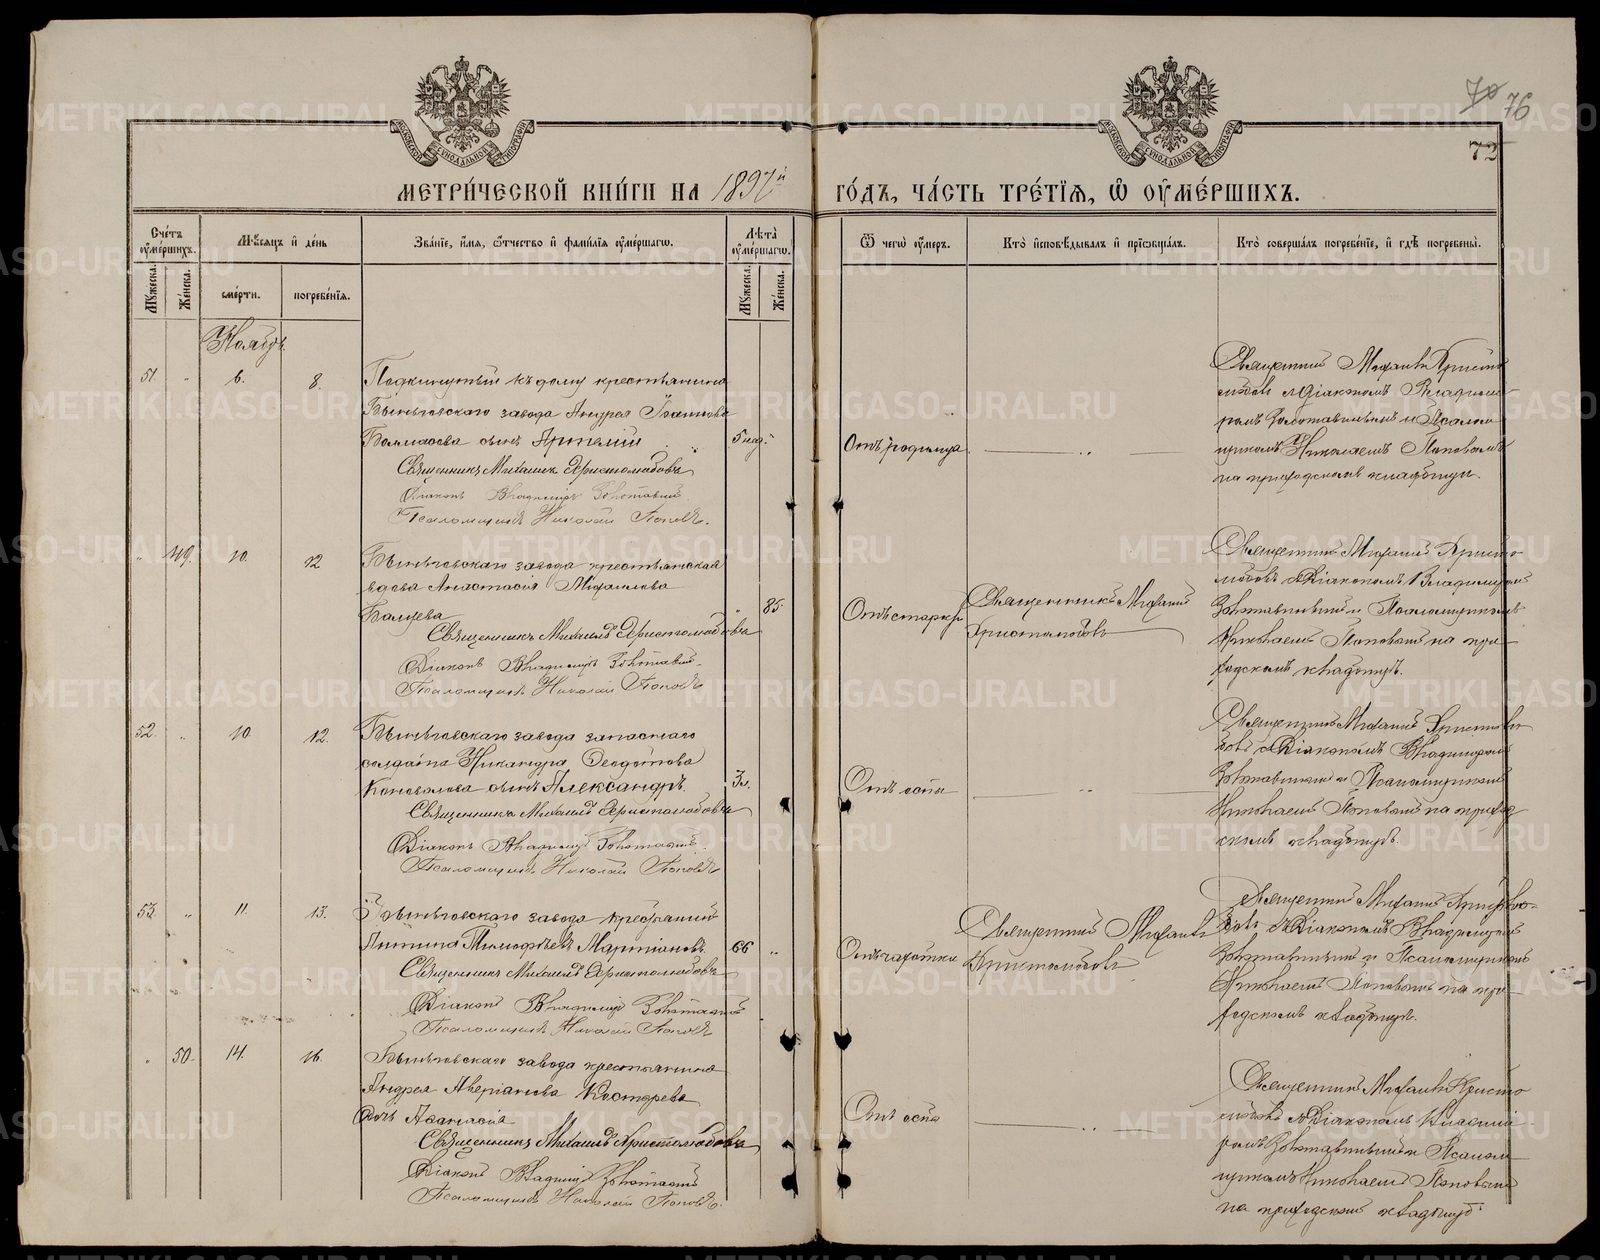 70 76
72
МЕТРИ́ЧЕСКОЙ КНИ́ГИ НА 1897й ГО́ДЪ, ЧА́СТЬ ТРЕ́ТІѦ, Ѡ҆ ОУ҆МЕ́РШИХЪ.
Сче́тъ оу҆ме́ршихъ.
Мꙋ́жеска.
Же́нска.
Мѣ́сѧцъ и҆ де́нь
сме́рти.
погребе́нїѧ.
Зва́нїе, и҆́мѧ, ѻ҆́тчество и҆ фами́лїѧ оу҆ме́ршагѡ.
Лѣ́та̀ оу҆ме́ршагѡ.
Мꙋ́жеска.
Же́нска.
Ѿ чегѡ̀ оу҆́меръ.
Кто̀ и҆сповѣ́дывалъ и҆ прїѡбща́лъ.
Кто̀ соверша́лъ погребе́нїе, и҆ гдѣ̀ погребены̀.
Ноябрь
51. „ 6. 8.
Подкинутый къ дому крестьянина
Быньговскаго завода Андрея Іоаннова
сынъ Артемій
5 нед.
Священникъ Михаилъ Христолюбовъ
Діаконъ Владиміръ
Псаломщикъ Николай Поповъ.
Отъ родимца
Священникъ Михаилъ Христо-
любовъ съ Діакономъ Владими-
ромъ и Псалом-
щикомъ Николаемъ Поповымъ
на приходскомъ кладбищѣ.
„ 49. 10. 12
Быньговскаго завода крестьянская
вдова Анастасія Михаилова
85.
Священникъ Михаилъ Христолюбовъ
Діаконъ Владиміръ
Псаломщикъ Николай Поповъ
Отъ старости
Священникъ Михаилъ
Христолюбовъ
Священникъ Михаилъ Христо-
любовъ съ Діакономъ Владимиромъ
и Псаломщикомъ
Николаемъ Поповымъ на при-
ходскомъ кладбищѣ.
52. „ 10. 12.
Быньговскаго завода запаснаго
солдата Никандра Ѳеодотова
Коновалова сынъ Александръ.
3 л.
Священникъ Михаилъ Христолюбовъ
Діаконъ Владиміръ
Псаломщикъ Николай Поповъ
Отъ оспы
Священникъ Михаилъ Христолю-
бовъ съ Діакономъ Владимиромъ
и Псаломщикомъ
Николаемъ Поповымъ на приход-
скомъ кладбищѣ.
53. „ 11. 13.
Быньговскаго завода крестьянинъ
Тимофѣевъ Мартіановъ
66 „
Священникъ Михаилъ Христолюбовъ
Діаконъ Владиміръ
Псаломщикъ Николай Поповъ
Отъ чахотки
Священникъ Михаилъ
Христолюбовъ
Священникъ Михаилъ Христолю-
бовъ съ Діакономъ Владимиромъ
и Псаломщикомъ
Николаемъ Поповымъ на при-
ходскомъ кладбищѣ.
„ 50. 14. 16.
Быньговскаго завода крестьянина
Андрея Аверіанова Костарева
дочь Аѳанасія
Священникъ Михаилъ Христолюбовъ
Діаконъ Владиміръ
Псаломщикъ Николай Поповъ.
Отъ оспы
Священникъ Михаилъ Христо-
любовъ съ Діакономъ Владими-
ромъ и Псалом-
щикомъ Николаемъ Поповымъ
на приходскомъ кладбищѣ.
METRIKI.GASO-URAL.RU